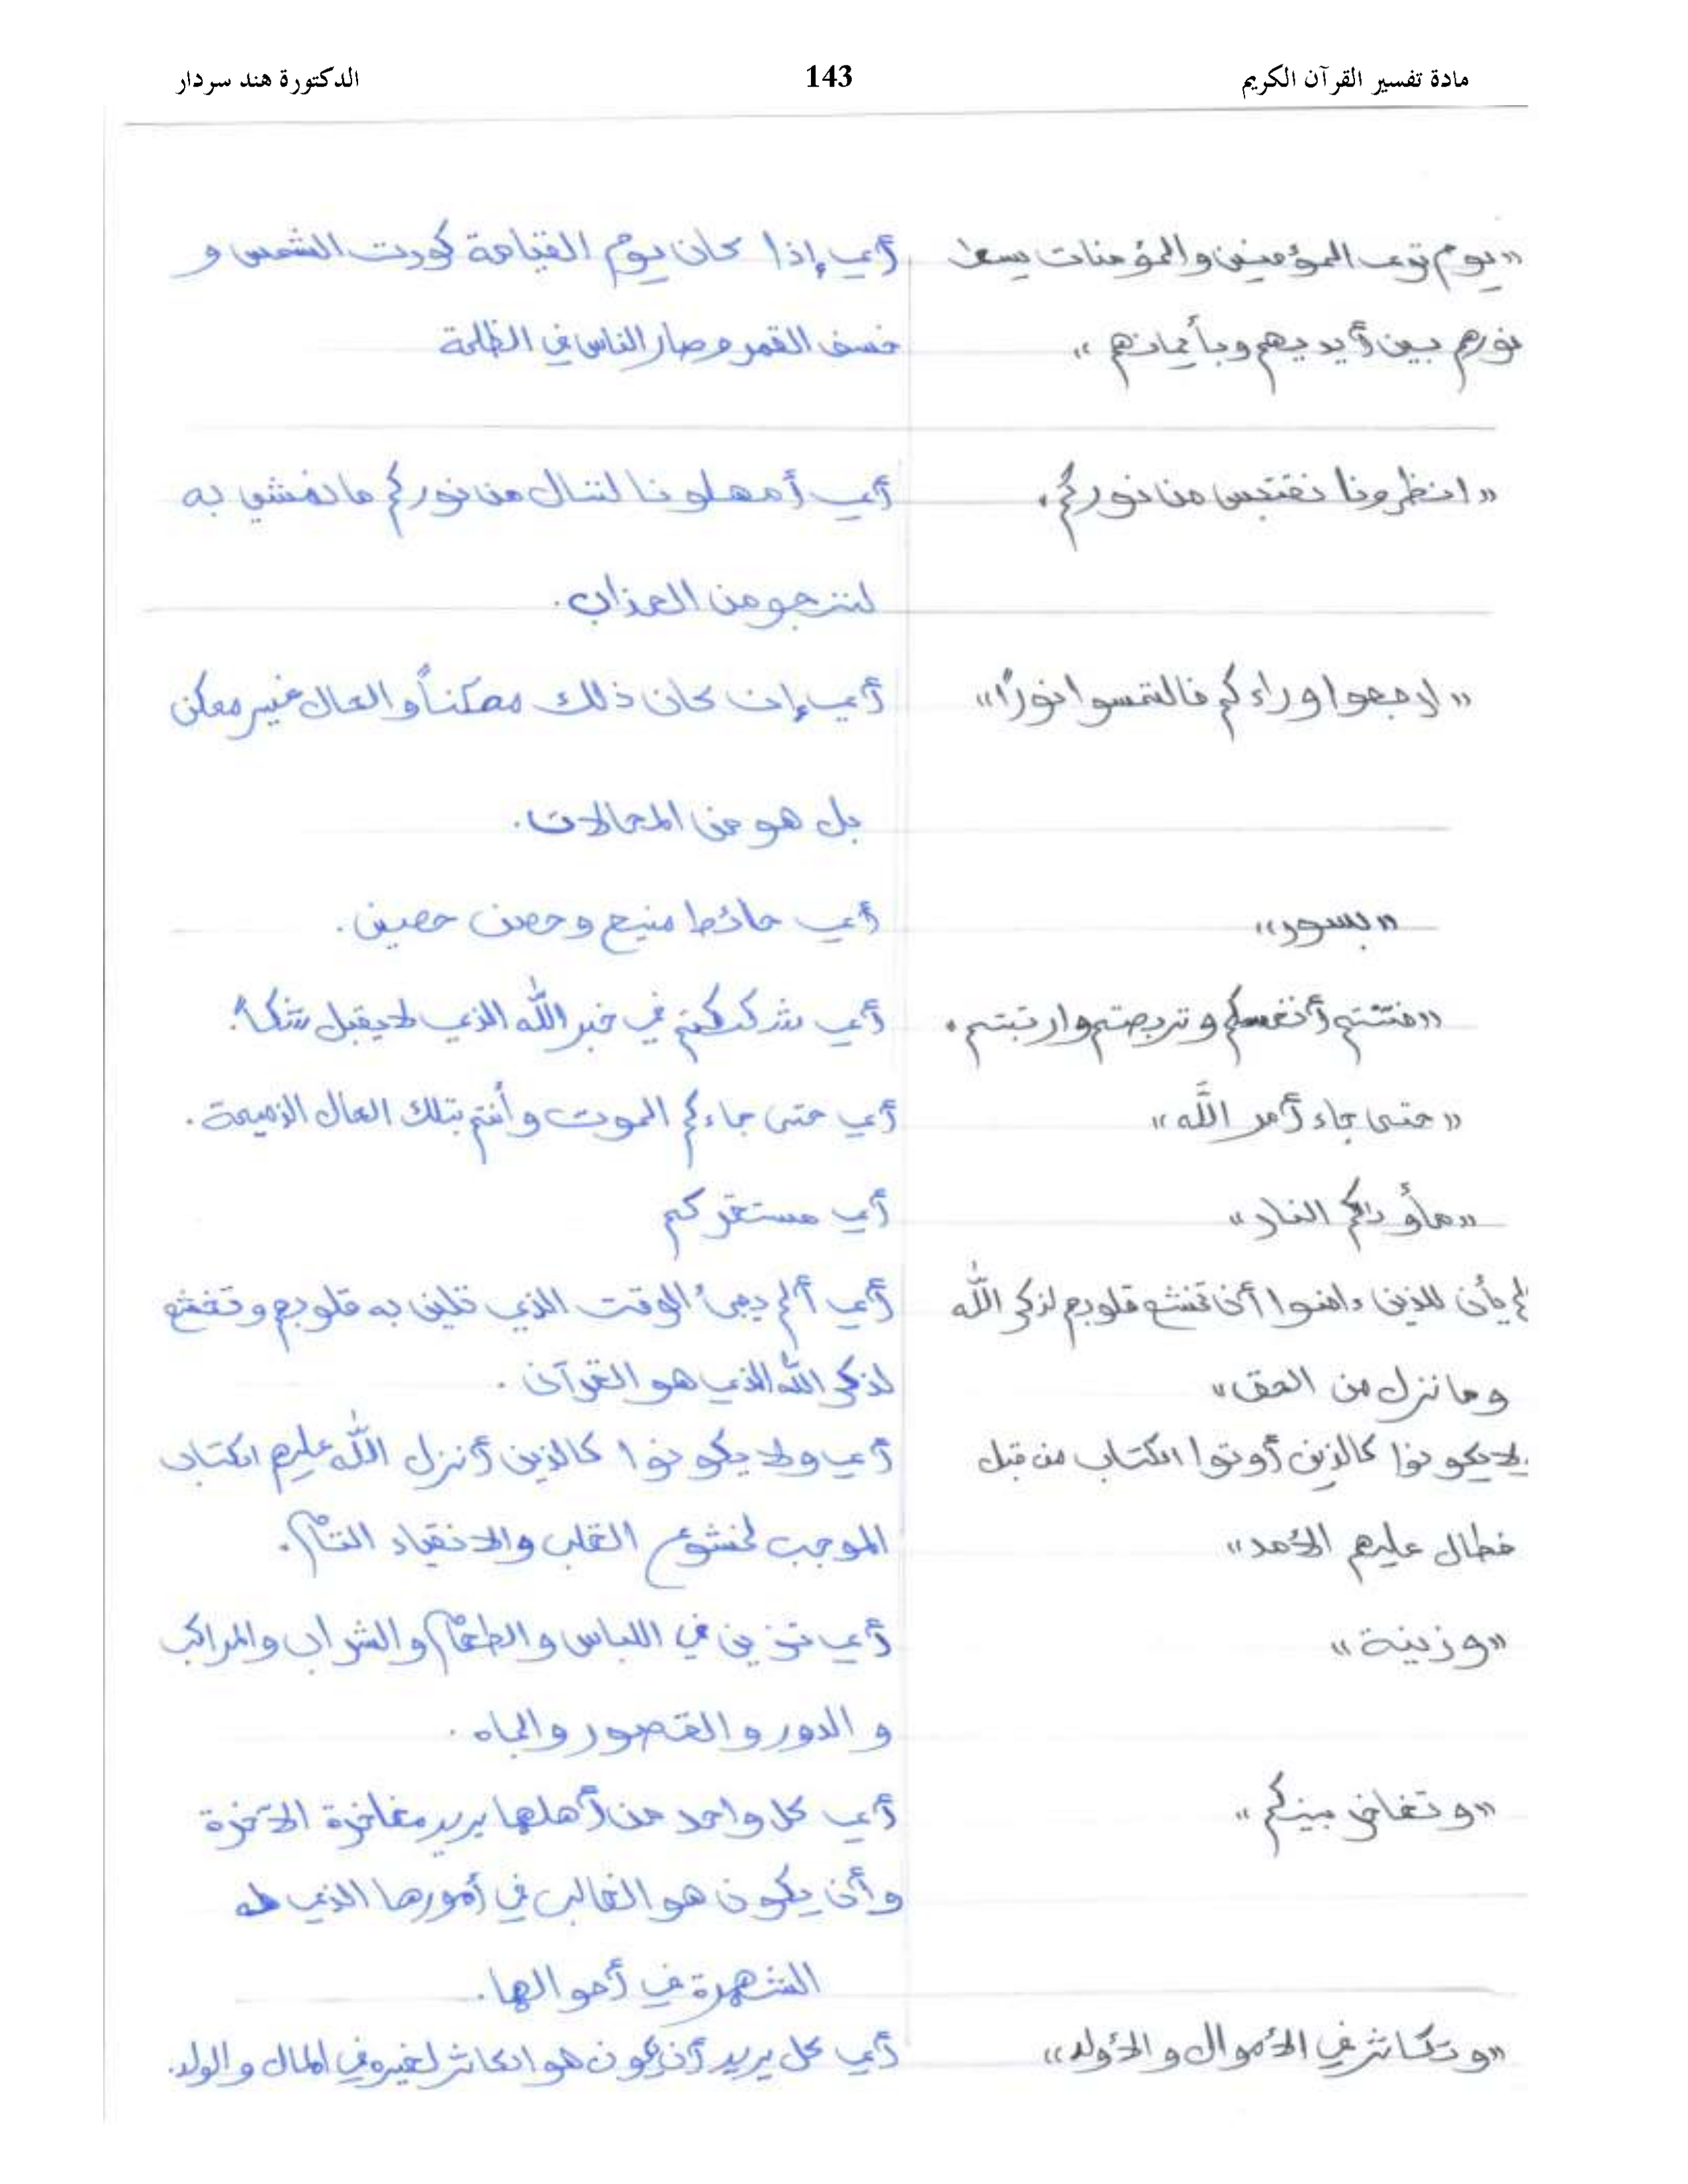 مادة تفسير القرآن الكريم 143 الدكتورة هند سردار
«يوم ترى المؤمنين والمؤمنات يسعى أي إذا كان يوم القيامة كورت الشمس و
نورهم بين أيديهم وبأيمانهم» خسف القمر وصار الناس في الظلمة
«انظرونا نقتبس من نوركم» أي أمهلونا لننال من نوركم ما نمشي به
لننجو من العذاب.
«ارجعوا وراءكم فالتمسوا نورًا» أي إن كان ذلك ممكناً والحال غير ممكن
بل هو من المحالات.
«بسور» أي حائط منيع وحصن حصين.
«فتنتم أنفسكم وتربصتم وارتبتم» أي شككتم في خبر الله الذي لا يقبل شكاً.
«حتى جاء أمر الله» أي حتى جاءكم الموت وأنتم بتلك الحال الذميمة.
«مأواكم النار» أي مستقركم
لم يأن للذين ءامنوا أن تخشع قلوبهم لذكر الله أي ألم يجئ الوقت الذي تلين به قلوبهم وتخشع
وما نزل من الحق» لذكر الله الذي هو القرآن.
لا يكونوا كالذين أوتوا الكتاب من قبل أي ولا يكونوا كالذين أنزل الله عليهم الكتاب
فطال عليهم الأمد» الموجب لخشوع القلب والانقياد التام.
«وزينة» أي تزين في اللباس والطعام والشراب والمراكب
و الدور والقصور والجاه.
«وتفاخر بينكم» أي كل واحد من أهلها يريد مفاخرة الآخرة
وأن يكون هو الغالب في أمورها الذي له
الشهرة في أحوالها.
«وتكاثر في الأموال والأولد» أي كل يريد أن يكون هو الكاثر لغيره في المال والولد.